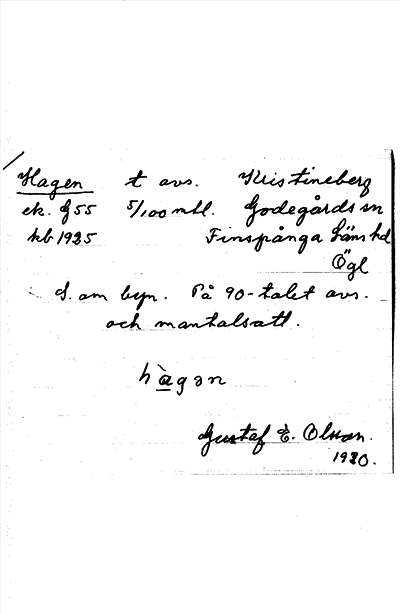 Hagen t avs. Kristineberg
ek. G55 5/100 mtl. Godegårds sn
kb 1925 Finspånga läns hd
Ögl
S. om byn. På 90-talet avs.
och mantalsatt.
hàgən
Gustaf E. Olsson.
1930.